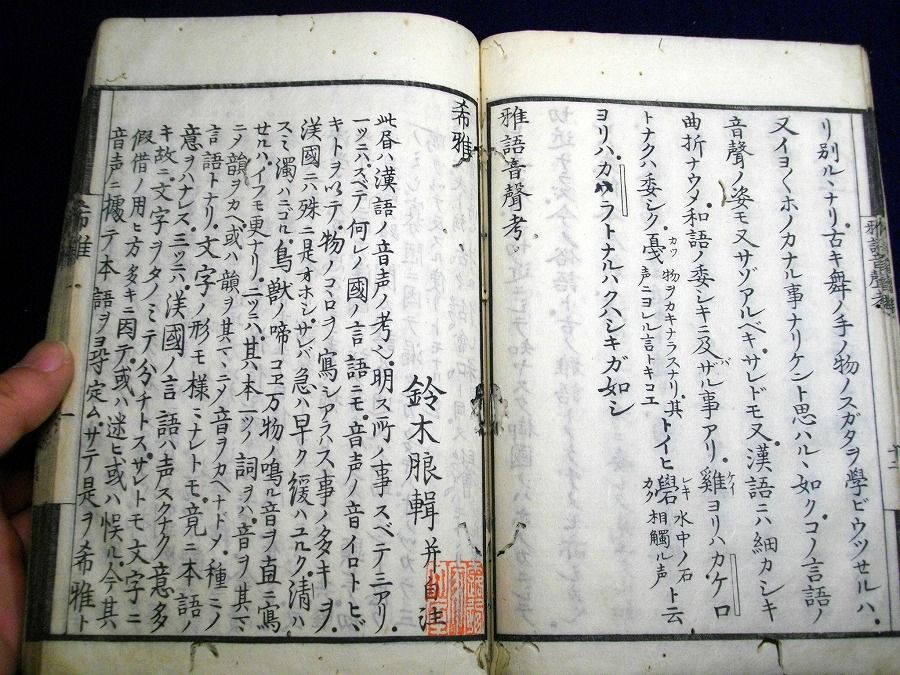 リ別ルヽナリ。古キ舞ノ手ノ物ノスガタヲ學ビウツセルハ。
又イヨ〱ホノカナル事ナリケント思ハルヽ如クコノ言語ノ
音聲ノ姿モ又サゾアルベキ。サレドモ又漢語ニハ細カシキ
曲折ナウメ。和語ノ委シキニ及バザル事アリ。雞ケイヨリハカケロ
トナクハ委シク。戞カツ物ヲカキナラスナリ。其声ニヨレル言トキコエトイヒ。礐レキカク水中ノ石相觸ル声ト云
ヨリハ。カラヽトナルハクハシキガ如シ
雅語音聲考ッ
希雅
鈴木朖輯 并自注
此㫪ハ漢語ノ音声ノ考也。明ス所ノ事スベテ三アリ。
一ッニハ。スベテ何レノ國ノ言語ニモ。音声ノ音イロトヒヾ
キトヲ以テ。物ノコロヲ寫シアラハス事ノ多キヲ。
漢國ニハ殊ニ是オホシ。サレバ急ハ早ク緩ハユルク。清ハ
スミ濁ハニゴル。鳥獣ノ啼コヱ万物ノ鳴ル音ヲ直ニ寫
セルハ。イフモ更ナリ。二ッニハ。其本一ッノ詞ヲハ。音ヲ其マヽ
ニメ韻ヲカヘ。或ハ韻ヲ其マヽニメ音ヲカヘナドメ。種ミノ
言語トナリ。文字ノ形モ様ミナレトモ。竟ニ本語ノ
意ヲハナレス。三ッニハ。漢國ノ言語ハ声スクナク。意多
キ故ニ。文字ヲタノミテ分チトス。サレトモ文字ニ
假借ノ用ヒ方多キニ因テ。或ハ迷ヒ或ハ悮ル。今其
音声ニ據テ本語ヲ㝷定ム。サテ是ヲ希雅ト
希雅
雅語音聲考
十二